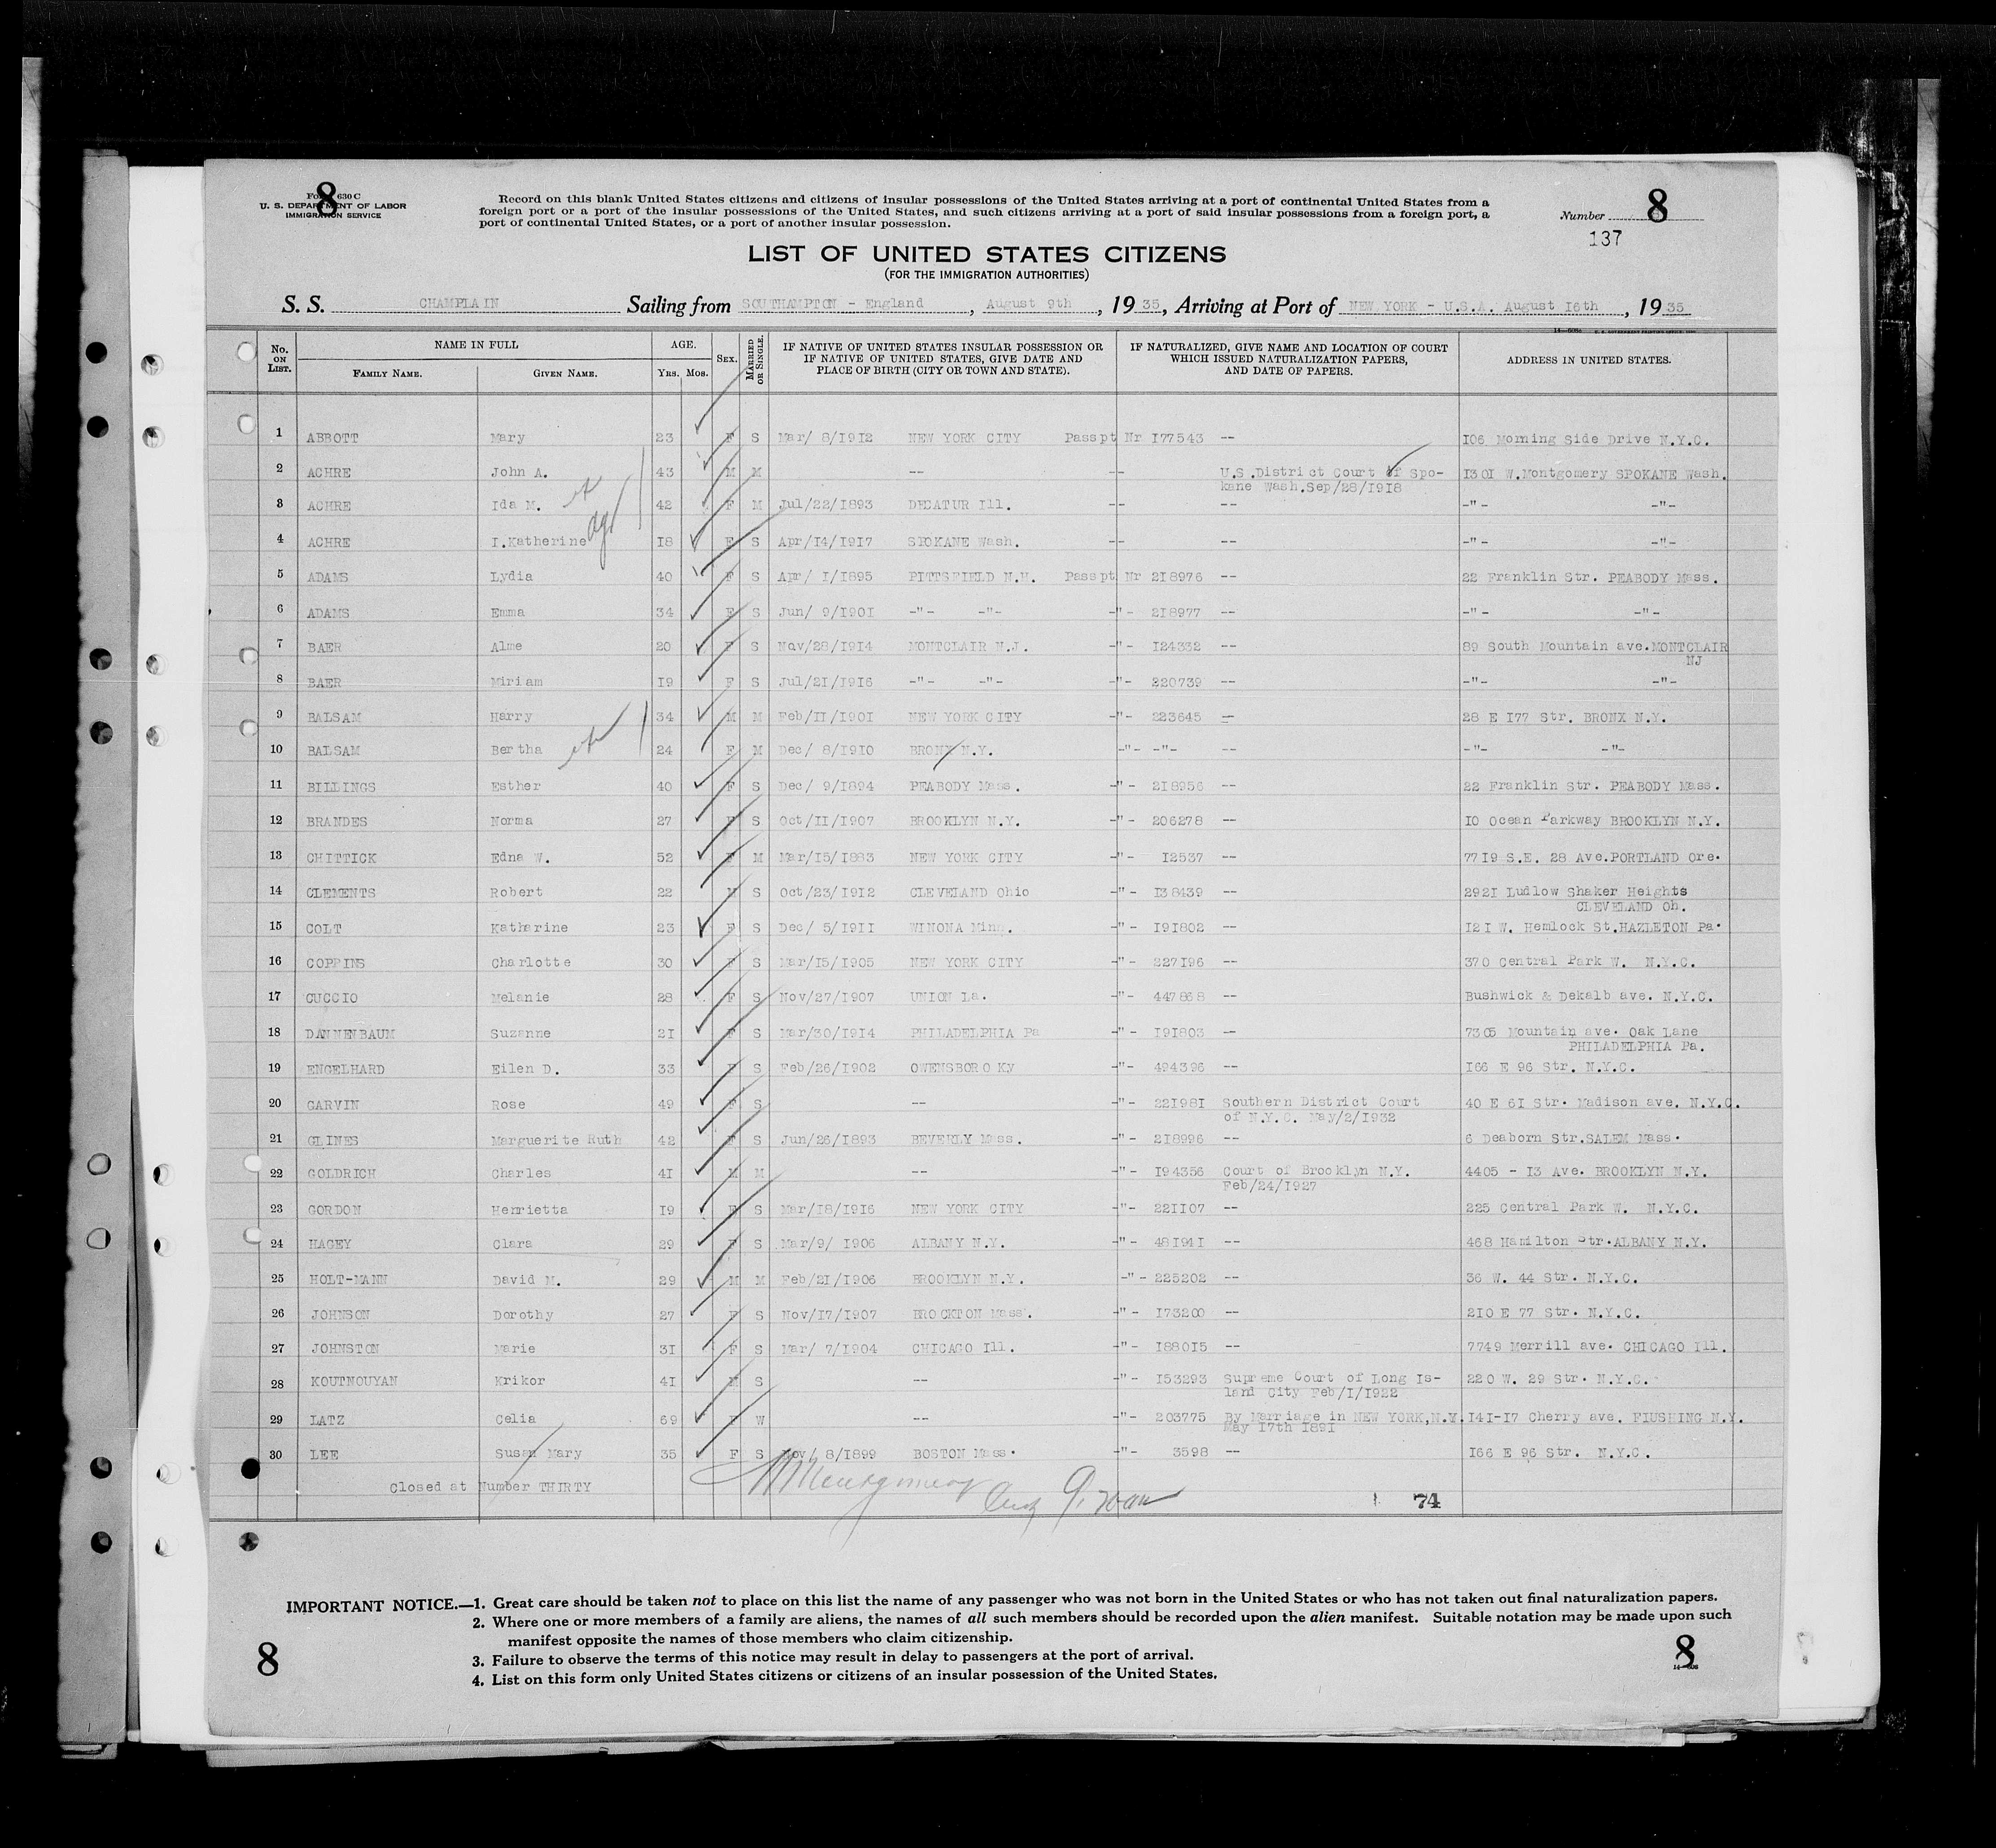 8
Form 630 C
U. S. DEPARTMENT OF LABOR
IMMIGRATION SERVICE
Record on this blank United States citizens and citizens of insular possessions of the United States arriving at a port of continental United States from a
foreign port or a port of the insular possessions of the United States, and such citizens arriving at a port of said insular possessions from a foreign port, a
port of continental United States, or a port of another insular possession.
Number 8
137
LIST OF UNITED STATES CITIZENS
(FOR THE IMMIGRATION AUTHORITIES)
S. S. CHAMPLAIN Sailing from SOUTHAMPTON - England, August 9th, 1935, Arriving at Port of NEW YORK - U.S.A. August 16th, 1935
No. ON LIST. NAME IN FULL FAMILY NAME. GIVEN NAME. AGE. YRS. MOS. SEX. MARRIED OR SINGLE. IF NATIVE OF UNITED STATES INSULAR POSSESSION OR IF NATIVE OF UNITED STATES, GIVE DATE AND PLACE OF BIRTH (CITY OR TOWN AND STATE). IF NATURALIZED, GIVE NAME AND LOCATION OF COURT WHICH ISSUED NATURALIZATION PAPERS, AND DATE OF PAPERS. ADDRESS IN UNITED STATES.
1 ABBOTT Mary 23 F S Mar/ 8/1912 NEW YORK CITY Passpt Nr 177543 -- 106 Morning Side Drive N.Y.C.
2 ACHRE John A. 43 M M -- -- U.S.District Court of Spo- 1301 W.Montgomery SPOKANE Wash.
kane Wash.Sep/28/1918
3 ACHRE Ida M. 42 F M Jul/22/1893 DECATUR Ill. -- -- -"- -"-
4 ACHRE I.Katherine 18 F S Apr/14/1917 SPOKANE Wash. -- -- -"- -"-
5 ADAMS Lydia 40 F S Apr/ 1/1895 PITTSFIELD N.H. Passpt Nr 218976 -- 22 Franklin Str. PEABODY Mass.
6 ADAMS Emma 34 F S Jun/ 9/1901 -"- -"- -"- 218977 -- -"- -"-
7 BAER Alme 20 F S Nov/28/1914 MONTCLAIR N.J. -"- 124332 -- 89 South Mountain ave.MONTCLAIR
NJ
8 BAER Miriam 19 F S Jul/21/1916 -"- -"- -"- 220739 -- -"- -"-
9 BALSAM Harry 34 M M Feb/11/1901 NEW YORK CITY -"- 223645 -- 28 E 177 Str. BRONX N.Y.
10 BALSAM Bertha 24 F M Dec/ 8/1910 BRONX N.Y. -"- -"- -- -"- -"-
11 BILLINGS Esther 40 F S Dec/ 9/1894 PEABODY Mass. -"- 218956 -- 22 Franklin Str. PEABODY Mass.
12 BRANDES Norma 27 F S Oct/11/1907 BROOKLYN N.Y. -"- 206278 -- 10 Ocean Parkway BROOKLYN N.Y.
13 CHITTICK Edna W. 52 F M Mar/15/1883 NEW YORK CITY -"- 12537 -- 7719 S.E. 28 Ave.PORTLAND Ore.
14 CLEMENTS Robert 22 M S Oct/23/1912 CLEVELAND Ohio -"- 138439 -- 2921 Ludlow Shaker Heights
CLEVELAND Oh.
15 COLT Katharine 23 F S Dec/ 5/1911 WINONA Minn. -"- 191802 -- 121 W. Hemlock St.HAZLETON Pa.
16 COPPINS Charlotte 30 F S Mar/15/1905 NEW YORK CITY -"- 227196 -- 370 Central Park W. N.Y.C.
17 CUCCIO Melanie 28 F S Nov/27/1907 UNION La. -"- 447868 -- Bushwick & Dekalb ave. N.Y.C.
18 DANNENBAUM Suzanne 21 F S Mar/30/1914 PHILADELPHIA Pa -"- 191803 -- 7305 Mountain ave. Oak Lane
PHILADELPHIA Pa.
19 ENGELHARD Eilen D. 33 F S Feb/26/1902 OWENSBORO Ky -"- 494396 -- 166 E 96 Str. N.Y.C.
20 GARVIN Rose 49 F S -- -"- 221981 Southern District Court 40 E 61 Str. Madison ave. N.Y.C.
of N.Y.C. May/2/1932
21 GLINES Marguerite Ruth 42 F S Jun/26/1893 BEVERLY Mass. -"- 218996 -- 6 Deaborn Str.SALEM Mass.
22 GOLDRICH Charles 41 M M -- -"- 194356 Court of Brooklyn N.Y. 4405 - 13 Ave. BROOKLYN N.Y.
Feb/24/1927
23 GORDON Henrietta 19 F S Mar/18/1916 NEW YORK CITY -"- 221107 -- 225 Central Park W. N.Y.C.
24 HAGEY Clara 29 F S Mar/9/ 1906 ALBANY N.Y. -"- 481941 -- 468 Hamilton Str.ALBANY N.Y.
25 HOLT-MANN David M. 29 M M Feb/21/1906 BROOKLYN N.Y. -"- 225202 -- 36 W. 44 Str. N.Y.C.
26 JOHNSON Dorothy 27 F S Nov/17/1907 BROCKTON Mass. -"- 173200 -- 210 E 77 Str. N.Y.C.
27 JOHNSTON Marie 31 F S Mar/ 7/1904 CHICAGO Ill. -"- 188015 -- 7749 Merrill ave. CHICAGO Ill.
28 KOUTNOUYAN Krikor 41 M S -- -"- 153293 Supreme Court of Long Is- 220 W. 29 Str. N.Y.C.
land City Feb/1/1922
29 LATZ Celia 69 F W -- -"- 203775 By Marriage in NEW YORK,N.Y. 141-17 Cherry ave. FLUSHING N.Y.
May 17th 1891
30 LEE Susan Mary 35 F S Nov/ 8/1899 BOSTON Mass. -"- 3598 -- 166 E 96 Str. N.Y.C.
Closed at Number THIRTY
Montgomery
74
IMPORTANT NOTICE.—1. Great care should be taken not to place on this list the name of any passenger who was not born in the United States or who has not taken out final naturalization papers.
2. Where one or more members of a family are aliens, the names of all such members should be recorded upon the alien manifest. Suitable notation may be made upon such
manifest opposite the names of those members who claim citizenship.
3. Failure to observe the terms of this notice may result in delay to passengers at the port of arrival.
4. List on this form only United States citizens or citizens of an insular possession of the United States.
8
8